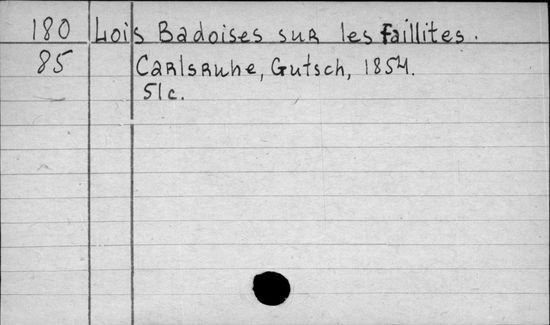 180 Lois Badoises sur les faillites.
85 Carlsruhe, Gutsch, 1854.
51c.